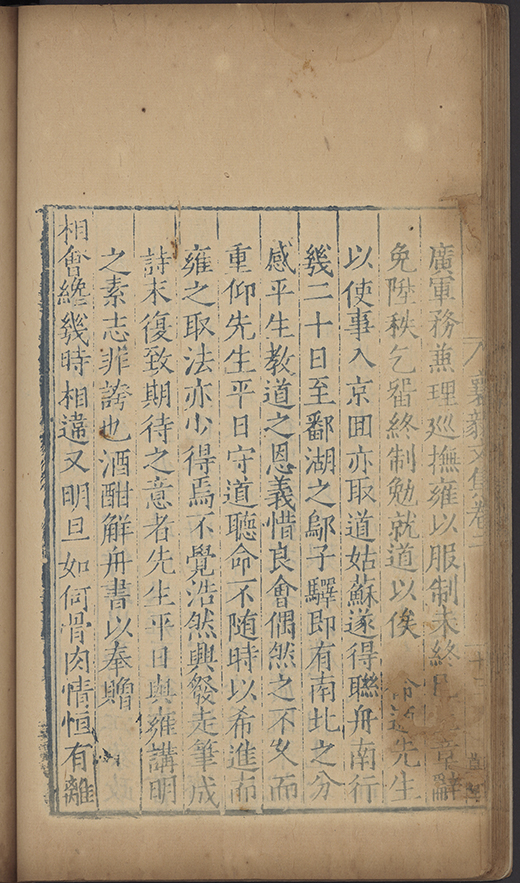 襄毅文集卷二
廣軍務兼理巡撫雍以服制未終 章辭
免陞秩乞畱終制勉就道以俟 命適先生
以使事入京囬亦取道姑蘇遂得聯舟南行
幾二十日至鄱湖之鄔子驛即有南北之分
感平生教道之恩義惜良會偶然之不久而
重仰先生平日守道聽命不随時以希進而
雍之取法亦少得焉不覺浩然興發走筆成
詩末復致期待之意者先生平日與雍講明
之素志非誇也酒酣解舟書以奉贈
相會纔幾時相違又明旦如何骨肉情恒有離